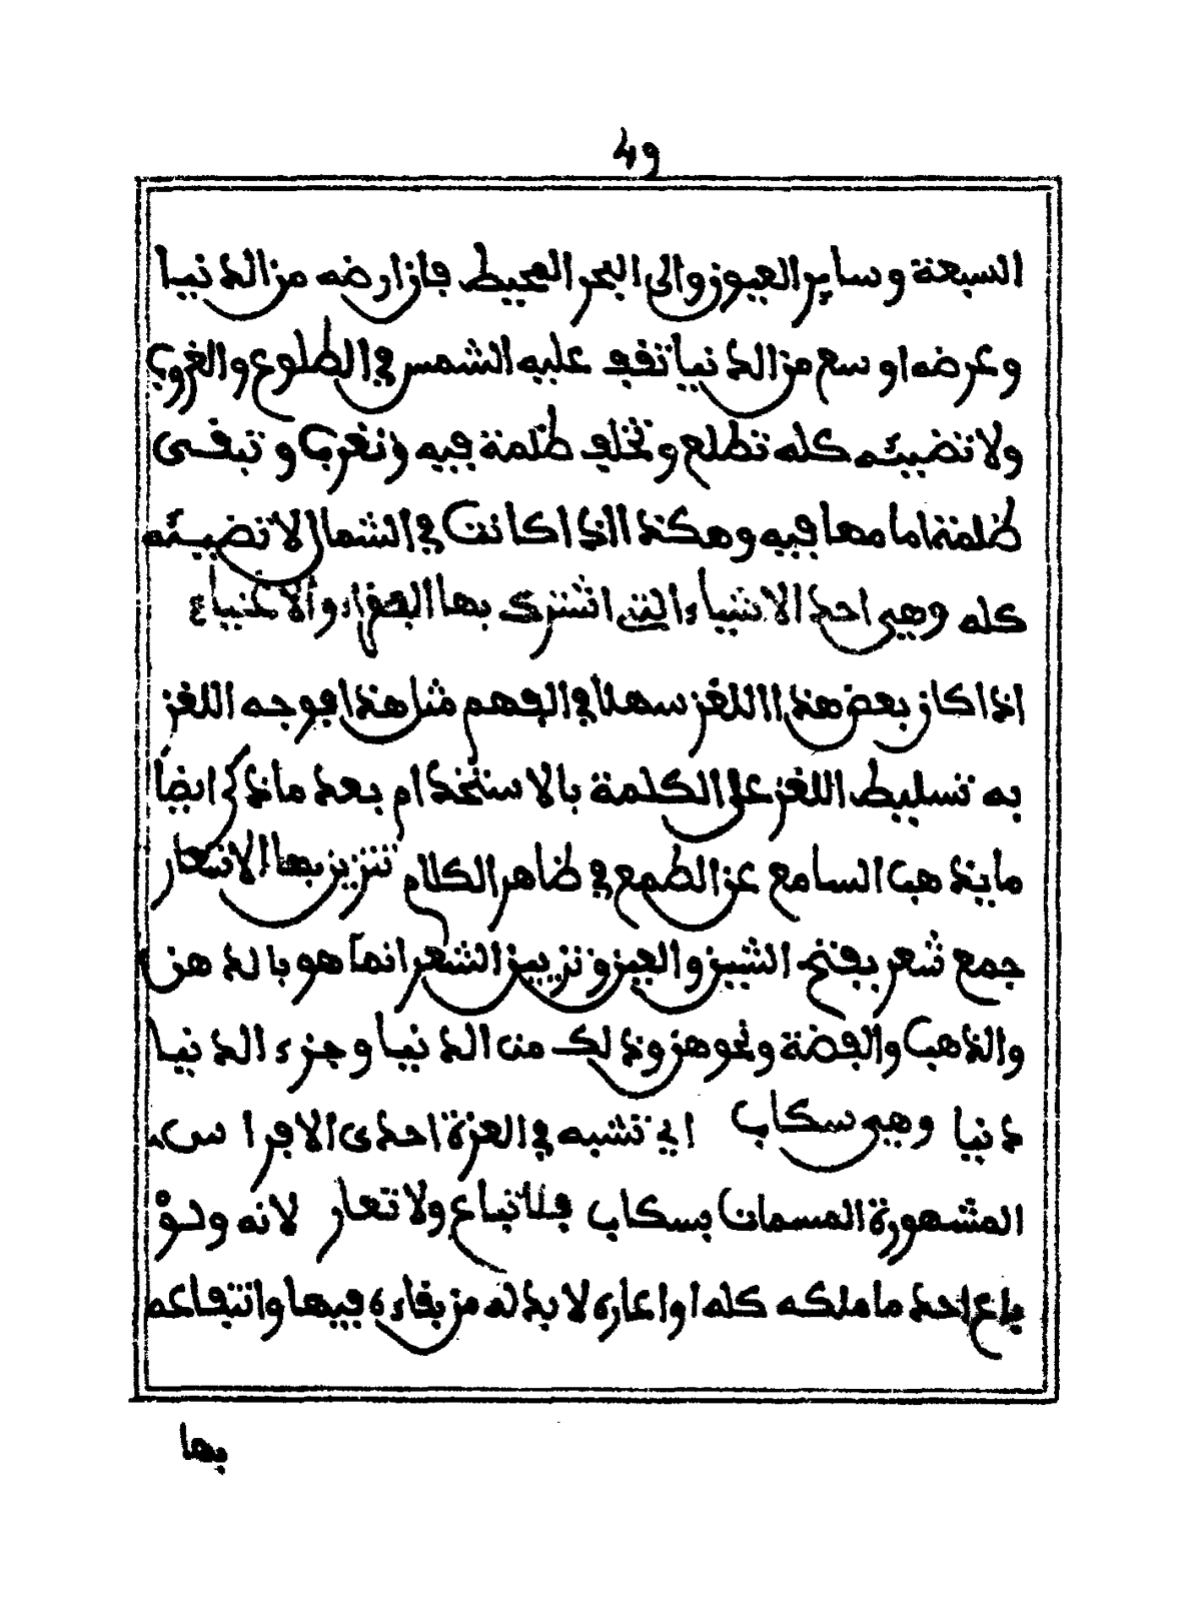 49
السبعة وساير العيون والى البحر المحيط فان ارضه من الدنيا
وعرضه اوسع من الدنيا تقف عليه الشمس في الطلوع والغروب
ولا تضيئه كله تطلع وتخلف ظلمة فيه وتغرب وتبقى
ظلمة امامها فيه وهكذا اذا كانت في الشمال لا تضيئه
كله وهي احد الاشياء التي اشترى بها الفقراء والاغنياء
اذا كان بعض هذا اللغز سهلا في الفهم مثل هذا فوجه اللغز
به تسليط اللغز على الكلمة بالاستخدام بعد ماذكر ايضا
ما يذهب السامع عن الطمع في ظاهر الكلام تتزين بها الاشعار
جمع شعر بفتح الشين والعين وتزيين الشعر انما هو بالدهن
والذهب والفضة ونحو هن وذلك من الدنيا وجزء الدنيا
دنيا وهي سكاب اي تشبه في العزة احدى الافراس
المشهورة المسمات بسكاب فلا تباع ولا تعار لانه ولو
باع احد ما ملكه كله او اعاره لا بد له من بقاءه فيها وانتفاعه
بها